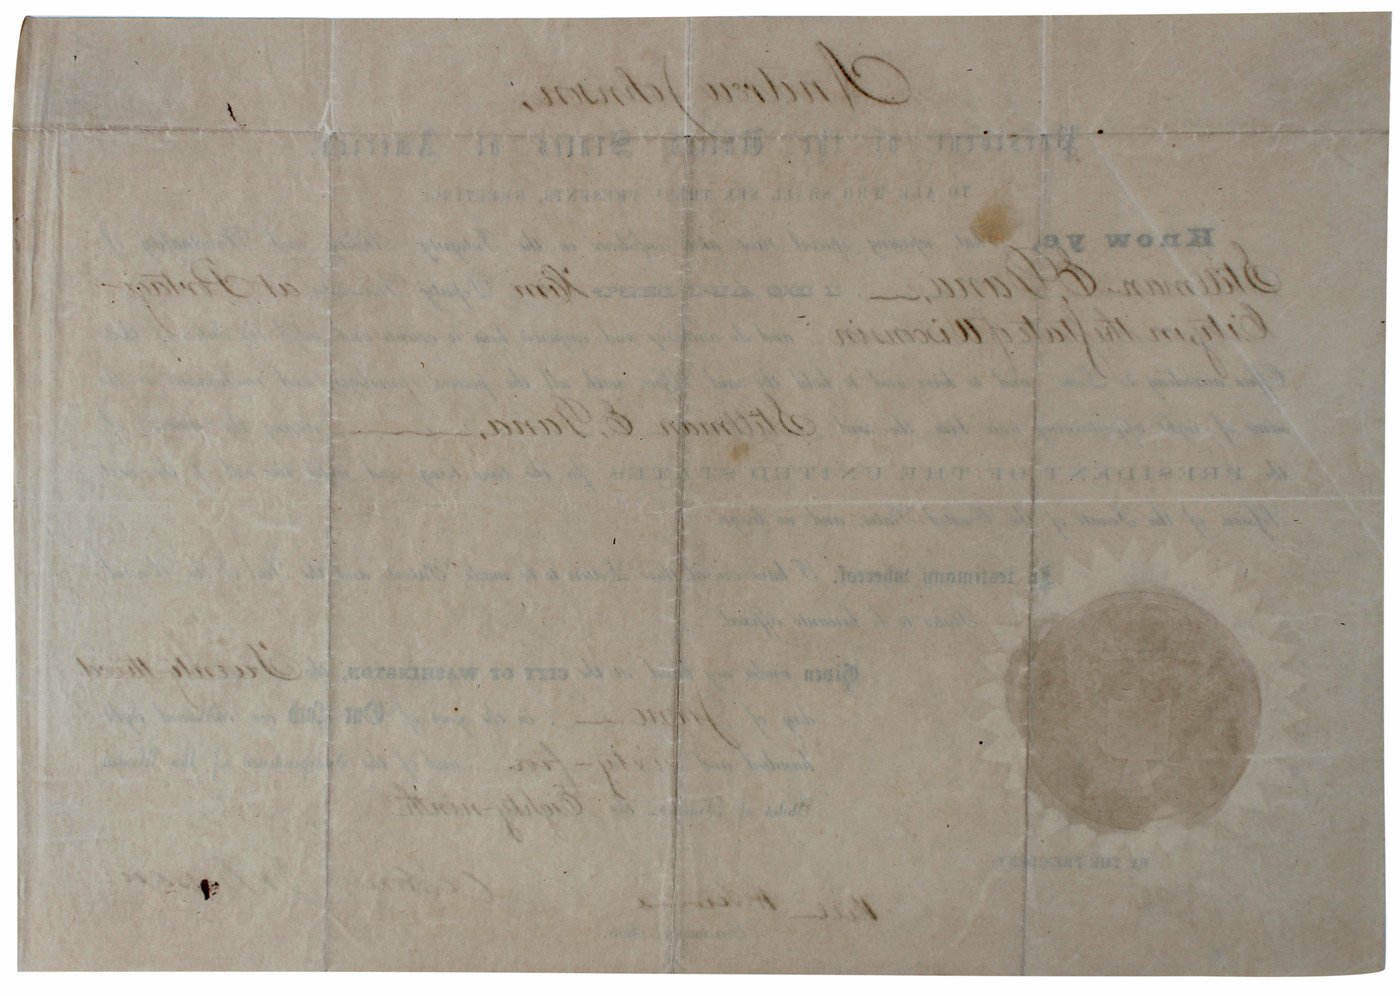 Andrew Johnson,
President of the United States of America,
TO ALL WHO SHALL SEE THESE PRESENTS, GREETING:
Know ye, That reposing special trust and confidence in the Integrity, Ability and Punctuality of
Stillman E. Dana, I DO APPOINT him Deputy Postmaster at Portage
City, in the State of Wisconsin and do authorize and empower him to execute and fulfil the duties of that
Office according to Law; and to have and to hold the said Office, with all the powers, privileges and emoluments to the
same of right appertaining unto him, the said Stillman E. Dana, during the pleasure of
the PRESIDENT OF THE UNITED STATES for the time being, and until the end of the next
Session of the Senate of the United States, and no longer.
In testimony whereof, I have caused these Letters to be made Patent and the Seal of the United
States to be hereunto affixed.
Given under my hand, at the CITY OF WASHINGTON, the Twenty third
day of June in the year of Our Lord one thousand eight
hundred and sixty-five and of the Independence of the United
States of America the Eighty-ninth.
BY THE PRESIDENT